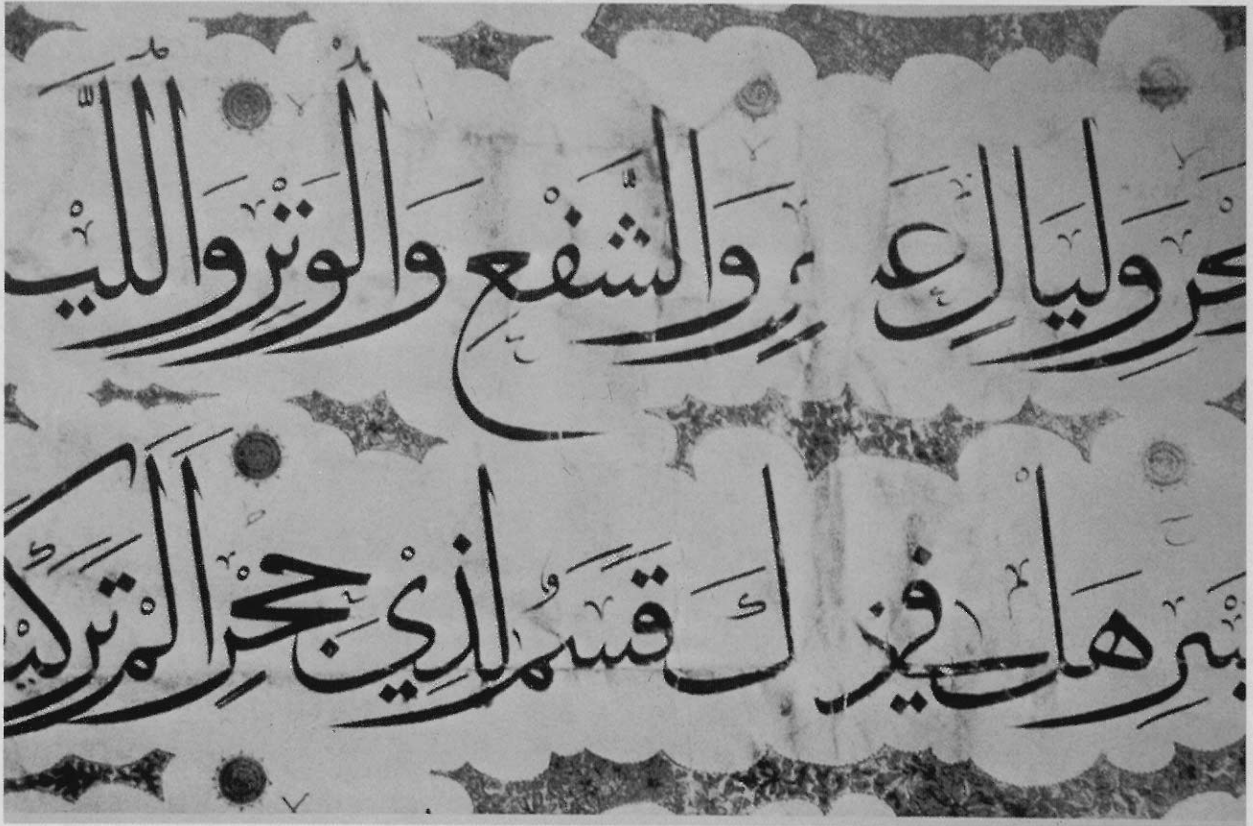 جرِ وَلَيَالٍ عَشرٍ وَالشَّفْعِ وَالْوَتْرِ وَاللَّيْ
يَسْرِ هَلْ فِي ذَلِكَ قَسَمٌ لِذِيْ حِجْرٍ اَلَمْ تَرَ كَيْ